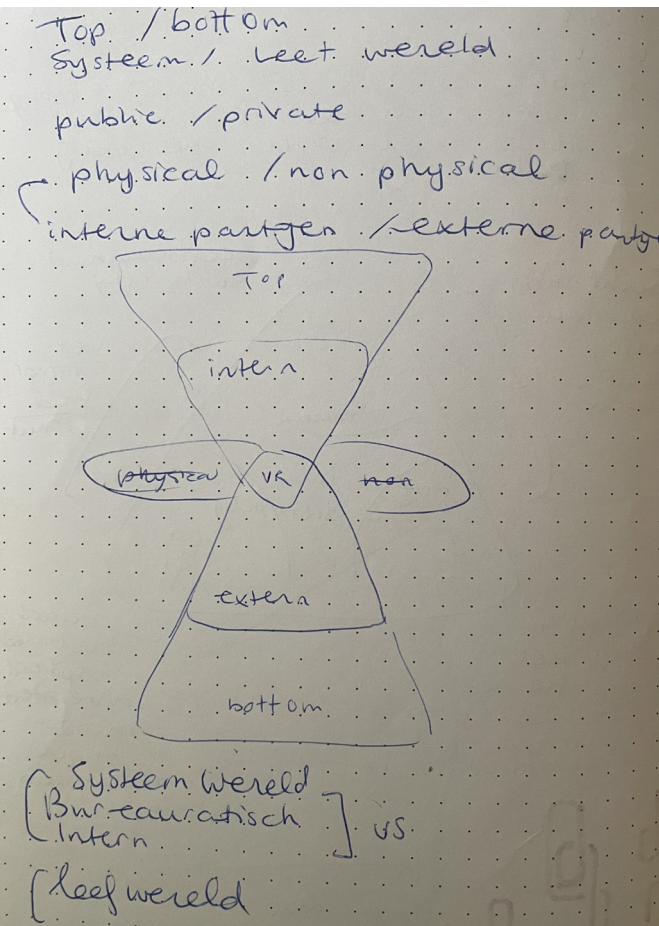 Top / bottom
Systeem / Leet wereld
public / private
physical / non physical
interne partijen / externe partij
Top
intern
physical VR non
extern
bottom
Systeem wereld
Bureauratisch
Intern
vs
leefwereld